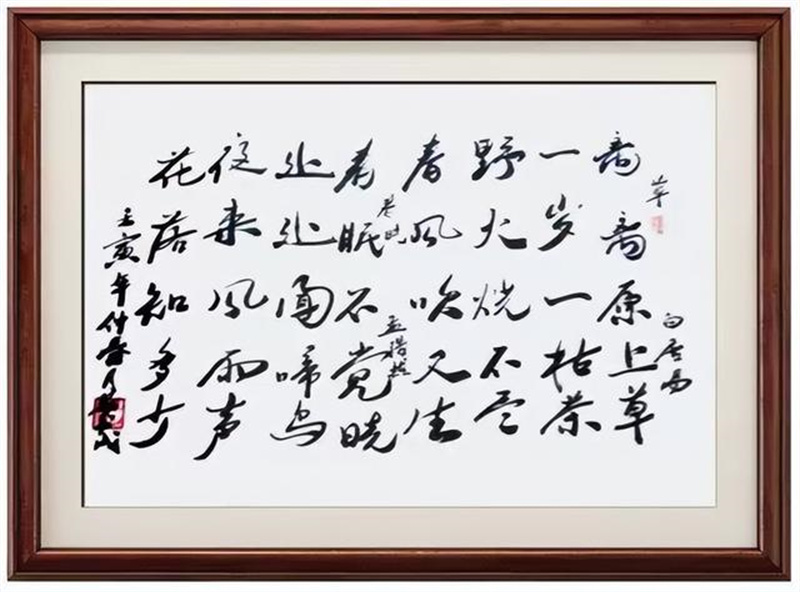 草
白居易
离离原上草
一岁一枯荣
野火烧不尽
春风吹又生
春晓
孟浩然
春眠不觉晓
处处闻啼鸟
夜来风雨声
花落知多少
壬寅年仲春月